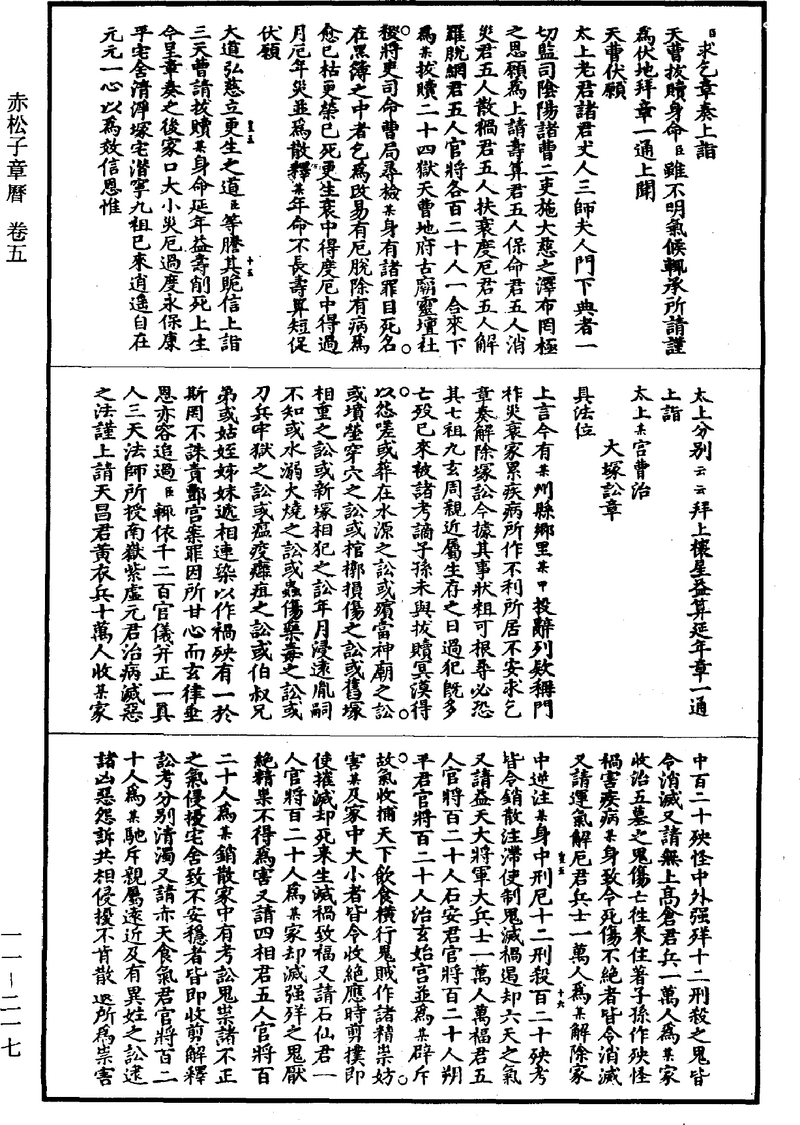 臣求乞章奏上詣
天曹拔贖身命臣雖不明氣候輒承所請謹
為伏地拜章一通上聞
天曹伏願
太上老君諸君丈人三師夫人門下典者一
切監司陰陽諸曹二吏施大慈之澤布罔極
之恩願為上請壽算君五人保命君五人消
災君五人散禍君五人扶衰度厄君五人解
羅脫網君五人官將各百二十人一合來下
為某拔贖二十四獄天曹地府古廟靈壇社
稷將吏司命曹局尋檢某身有諸罪目死名
在黑簿之中者乞為改易有厄脫除有病為
愈已枯更榮已死更生衰中得度厄中得過
月厄年災並為散釋某年命不長壽算短促
伏願
大道弘慈立更生之道臣等謄其䞈信上詣
三天曹請拔贖某身命延年益壽削死上生
令呈章奏之後家口大小災厄過度永保康
平宅舍清淨塚宅潛寧九祖已來逍遙自在
元元一心以為效信恩惟
太上分別云云拜上懷星益算延年章一通
上詣
太上某宮曹治
大塚訟章
具法位
上言今有某州縣鄉里某甲投辭列欵稱門
祚災衰家累疾病所作不利所居不安求乞
章奏解除塚訟今據其事狀粗可根尋必恐
其七祖九玄周親近屬生存之日過犯旣多
亡歿已來被諸考謫子孫未與拔贖冥漠得
以怨嗟或葬在水源之訟或殯當神廟之訟
或墳塋穿穴之訟或棺槨損傷之訟或舊塚
相重之訟或新塚相犯之訟年月浸遠胤嗣
不知或水溺火燒之訟或蟲傷藥毒之訟或
刀兵牢獄之訟或瘟疫癰疽之訟或伯叔兄
弟或姑姪姊妹遞相連染以作禍殃有一於
斯罔不誅責酆宮案罪因所甘心而玄律垂
恩亦容追過臣輒依千二百官儀并正一真
人三天法師所授南嶽紫虛元君治病滅惡
之法謹上請天昌君黃衣兵十萬人收某家
中百二十殃怪中外强殍十二刑殺之鬼皆
令消滅又請無上高倉君兵一萬人為某家
收治五墓之鬼傷亡往來住著子孫作殃怪
禍害疾病某身致令死傷不絕者皆令消滅
又請運氣解厄君兵士一萬人為某解除家
中逆注某身中刑厄十二刑殺百二十殃考
皆令銷散注滯使制鬼滅禍遏却六天之氣
又請益天大將軍大兵士一萬人萬福君五
人官將百二十人石安君官將百二十人朔
平君官將百二十人治玄始宮並為某辟斥
故氣收捕天下飲食橫行鬼賊作諸精祟妨
害某及家中大小者皆令收絕應時剪撲即
使摧滅却死來生滅禍致福又請石仙君一
人官將百二十人為某家却滅强殍之鬼厭
絕精祟不得為害又請四相君五人官將百
二十人為某銷散家中有考訟鬼祟諸不正
之氣侵擾宅舍致不安穩者皆即收剪解釋
訟考分別清濁又請赤天食氣君官將百二
十人為某馳斥親屬遠近及有異姓之訟逮
諸凶惡怨訴共相侵擾不肯散退所為祟害
赤松子章曆 卷五
一一—二一七